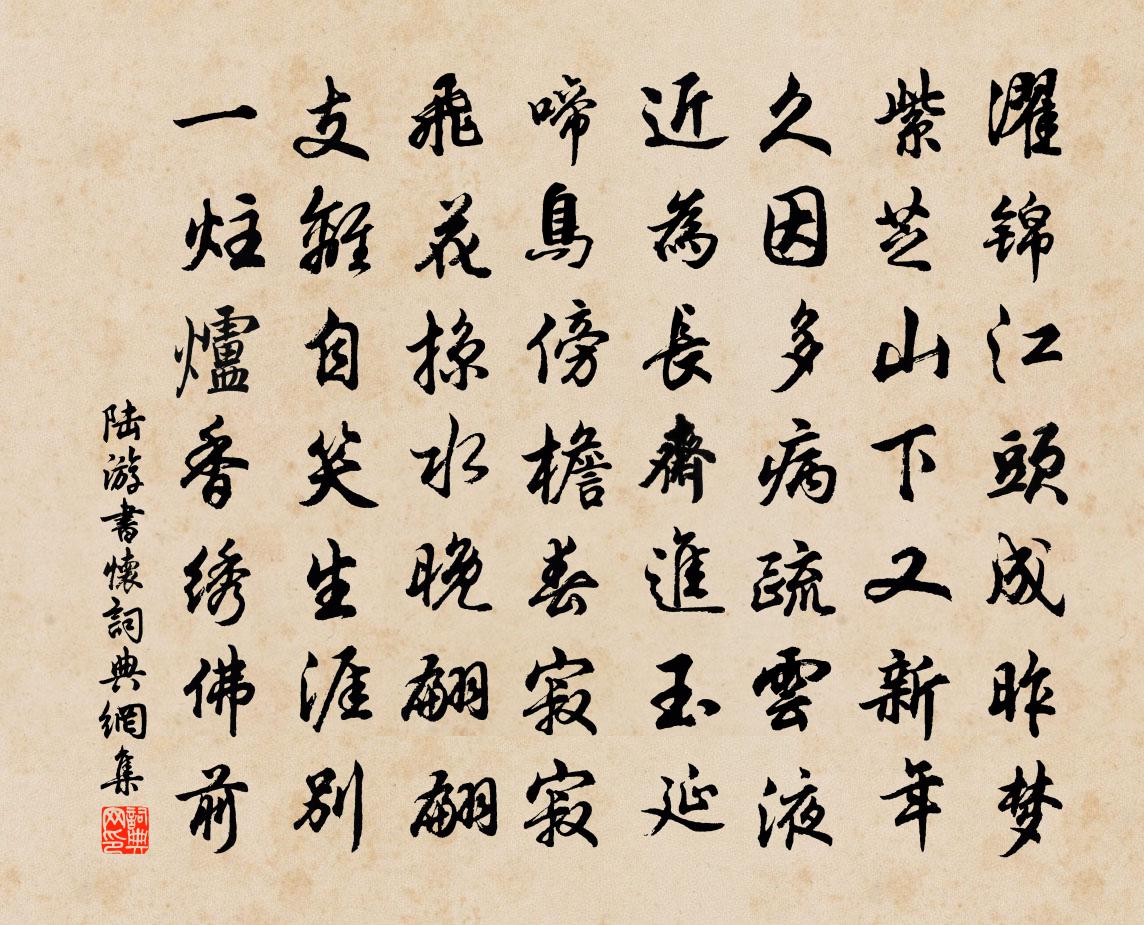 濯锦江頭成昨梦
紫芝山下又新年
久因多病疏雲液
近為長齋進玉延
啼鳥傍檐春寂寂
飛花掠水晚翩翩
支離自笑生涯別
一炷爐香绣佛前
陆游書懷詞典網集
詞典网印